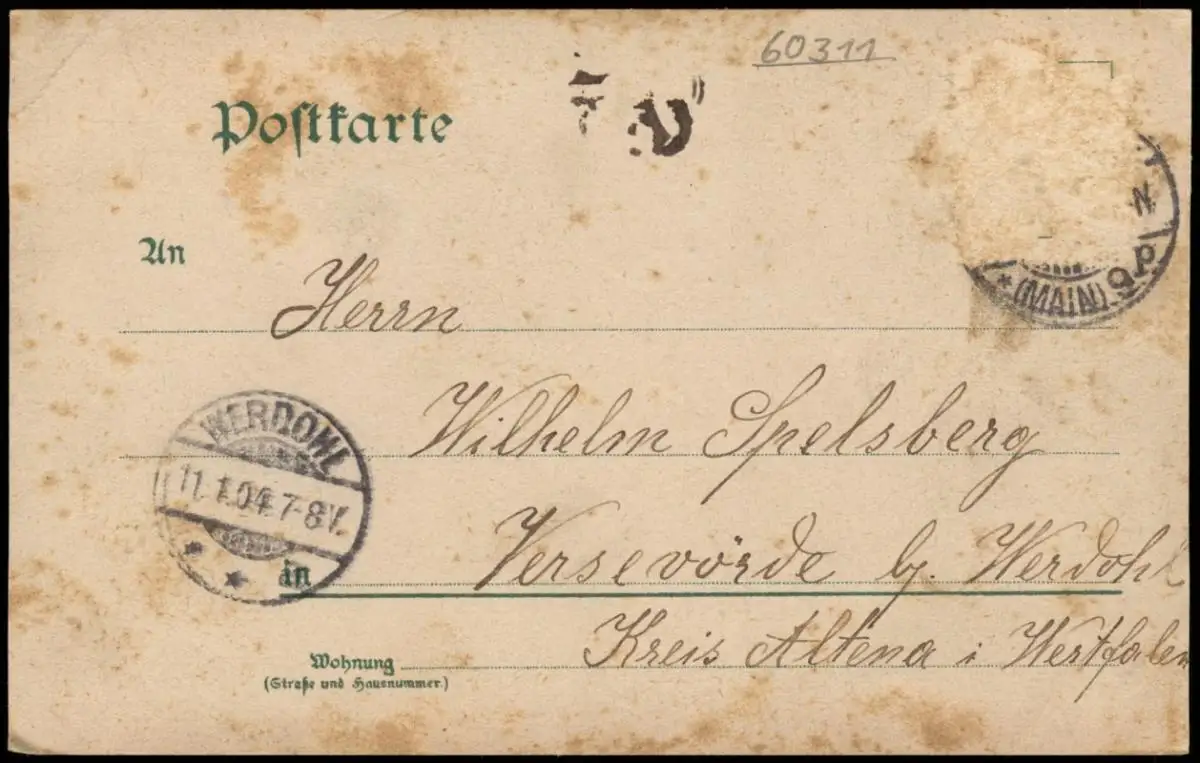 60311
Postkarte
An
Herrn
Wilhelm Spelsberg
WERDOHL
11.1.04.7-8V.
in
Versevörde bj. Werdohl
Kreis Altena i Westfalen
Wohnung
(Straße und Hausnummer.)
(MAIN)
9
N